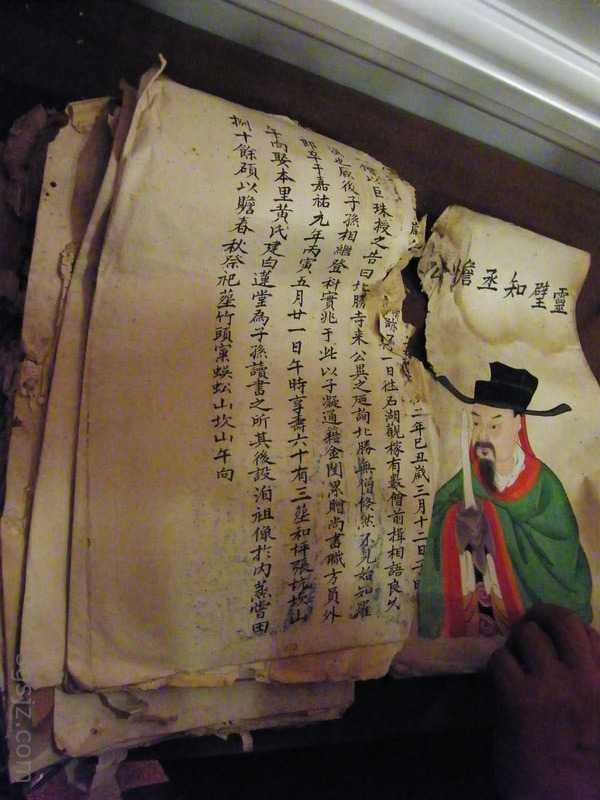 靈璧知丞憺公
二年己丑歲三月十二日子
一日往石湖觀稼有數僧前揖相語良久
以巨珠授之告曰北勝寺来公異之廵詢北勝無僧倐然不見始知羅
也厥後子孫相繼登科實兆于此以子凝通籍金閨累贈尚書職方員外
郎卒于嘉祐九年丙寅五月廿一日午時享壽六十有三塟和坪張坑坎山
午向娶本里黄氏建白蓮堂為子孫讀書之所其後設泊祖像於内蒸嘗田
捌十餘碩以贍春秋祭祀塟竹頭窠蜈蚣山坎山午向